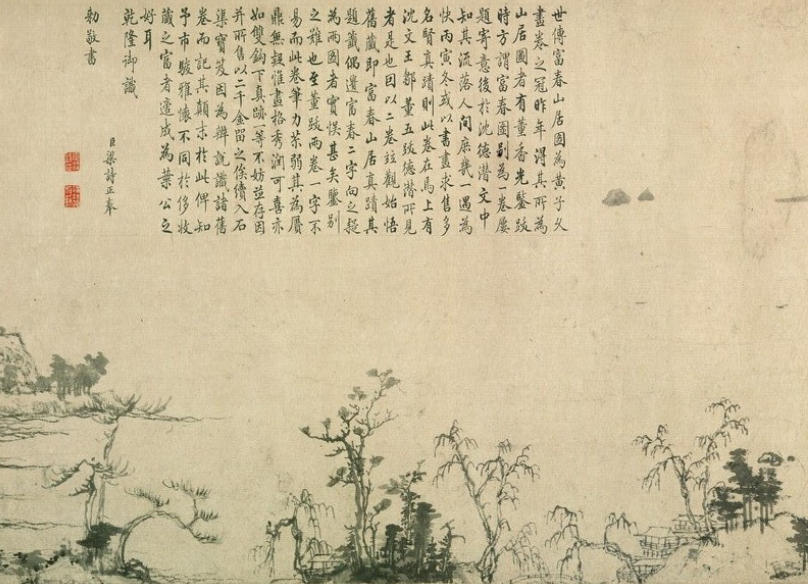 世傳富春山居圖為黃子久
畫卷之冠昨年得其所為
山居圖者有董香光鑒跋
時方謂富春圖別為一卷屢
題寄意後於沈德潛文中
知其流落人間庶幾一遇為
快丙寅冬或以書畫求售多
名賢真蹟則此卷在焉上有
沈文王鄒董五跋德潛所見
者是也因以二卷竝觀始悟
舊藏即富春山居真蹟其
題籤偶遺富春二字向之疑
為兩圖者實悞甚矣鑒別
之難也至董跋兩卷一字不
易而此卷筆力苶弱其為贋
鼎無疑惟畫格秀潤可喜亦
如雙鈎下真蹟一等不妨並存因
并所售以二千金留之俟續入石
渠寶笈因為辨說識諸舊
卷而記其顛末於此俾知
予市駿雅懷不同於侈收
藏之富者遽成為葉公之
好耳
乾隆御識
臣梁詩正奉
勅敬書